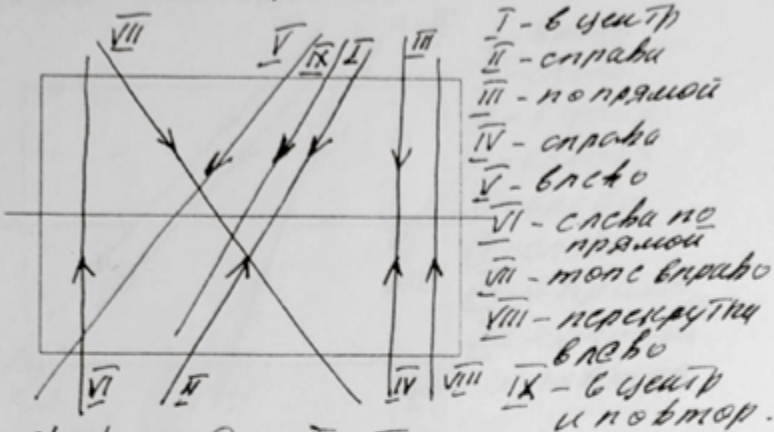 VII V IX I III
I - в центр
II - справа
III - по прямой
IV - справа
V - влево
VI - слева по
прямой
VII - топс вправо
VIII - перекрутка
влево
IX - в центр
и повтор.
VI II IV VIII